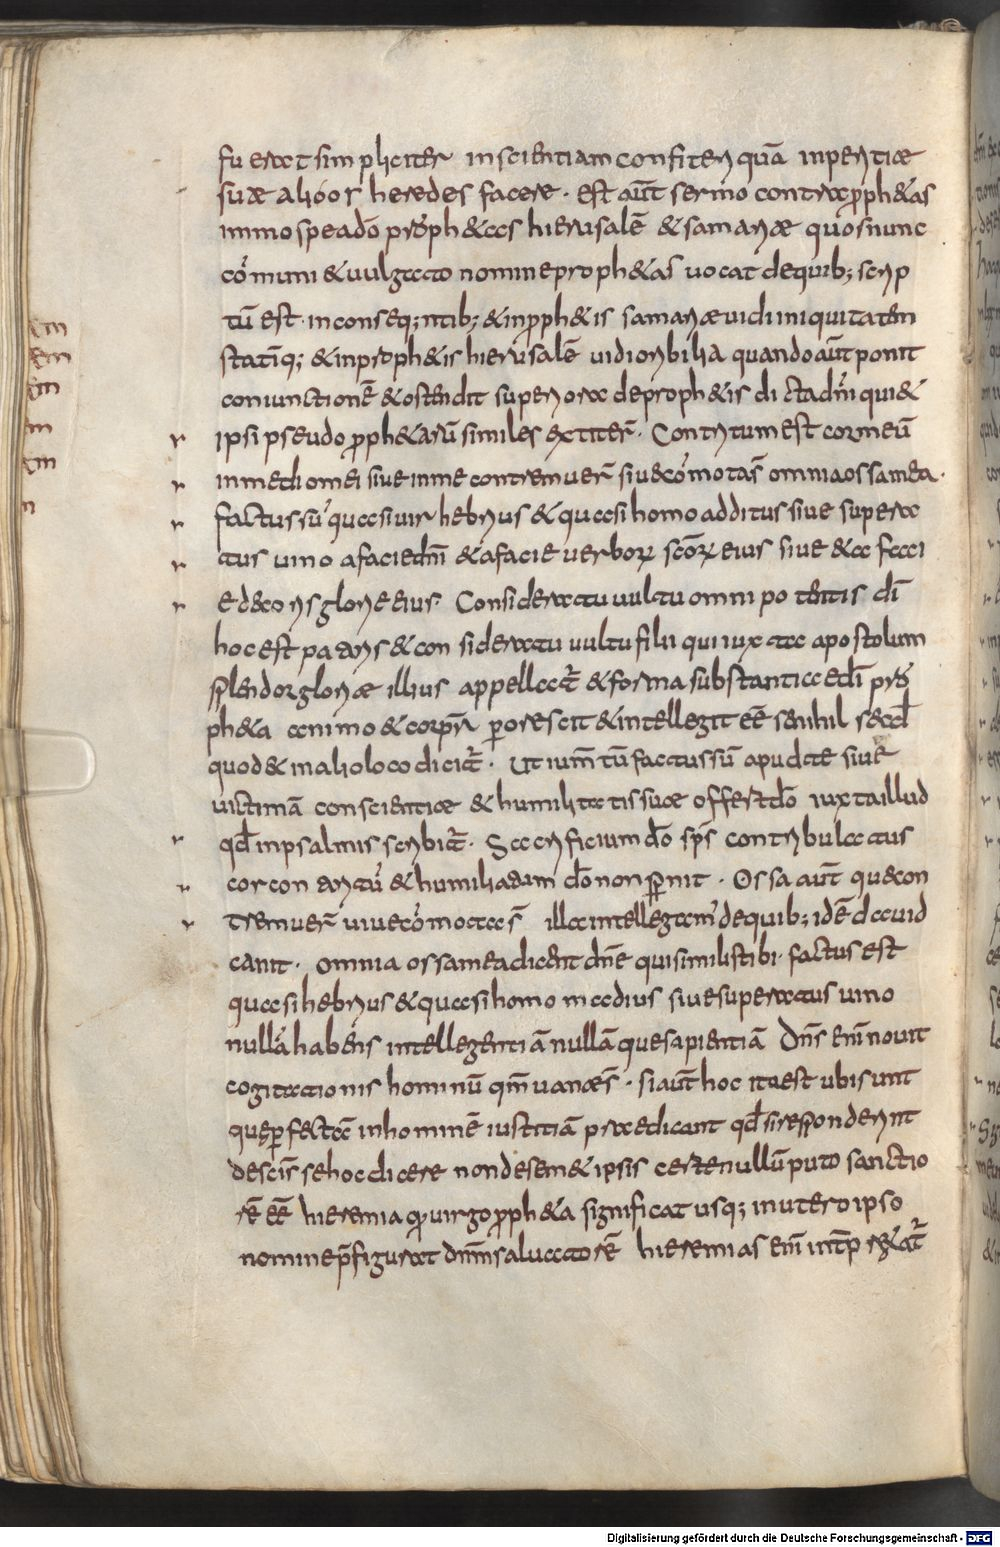 fuerat simpliciter inscientiam confiteri quā inperitiæ
suæ alióos heredes facere · est aūt sermo contra proph&as
immo speado proph&as hierusalē & samariæ quos nunc
cōmuni & uulgato nomine proph&as uocat de quib; scrip
tū est · in conseq;ntib; & in proph&is samariæ uidi iniquitatem
statīq; & in proph&is hierusalē uidi orribilia quando aūt ponit
coniunctionē & ostendit superiora de proph&is dicta dn̄i qui &
ipsi pseudo proph&arū similes extiter̄ · Contritum est cor meū
in medio mei siue in me contremuer̄ siue cōmota s̄ omnia ossa mea ·
factus sū quasi uir hebrius & quasi homo additus siue supera
tus uino a facie dn̄i & a facie uerborꝝ scōrꝝ eius siue & a faci
e decoris glorie eius · Considerato uultu omnipotentis dī
hoc est patris & considerato uultu filii qui iuxta apostolum
splendor gloriæ illius appellat̄ & forma substantiæ dī pro
ph&a animo & corpr̄ ꝑorescit & intellegit eē se nihil secd̄
quod & in alio loco dicit̄ · Ut ium̄tū factus sū apud te siue
uictimā conscientiæ & humilitatis suæ offert dō iuxta illud
qd̄ in psalmis scribit̄ · Sacrificium dō sps̄ contribulatus
cor contritū & humiliatum dō non spernit · Ossa aūt quæ con
tremuer̄ uiue cōmota s̄ illa intellegam̄ de quib; idē dauid
canit · omnia ossa mea dicent dn̄e qui similis tibi · factus est
quasi hebrius & quasi homo madius siue superatus uino
nullā habens intellegentiā nullāque sapientiā Dn̄s enī nouit
cogitationis hominū qm̄ uanæ s̄ · si aūt hoc ita est ubi sunt
que ꝑfectā in homine iustitiā prædicant qd̄ si responderint
de scīs se hoc dicere non de sem&ipsis certe nullū puto sanctio
rē eē hieremia qui uirgo proph&a significat usq; in utero ipso
nomine p̄figurat dn̄m saluatorē hieremias enī int̄pr&at̄